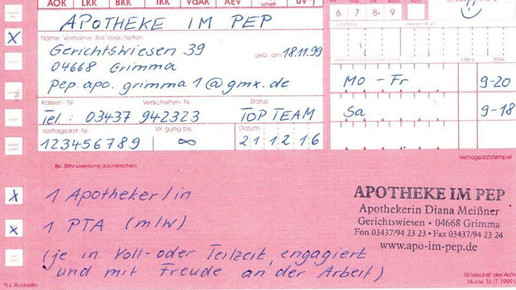 AOK LKK BKK IKK VdAK AEV
APOTHEKE IM PEP
Name, Vorname des Versicherten
Gerichtswiesen 39
geb. am 18.11.99
04668 Grimma
pep.apo.grimma1@gmx.de
6 7 8 9
Mo – Fr 9-20
Sa 9-18
Kassen-Nr. Versicherten-Nr. Status
Tel.: 03437 942323 TOP TEAM
Vertragsarzt-Nr. VK gültig bis Datum
123456789 ∞ 21.12.16
Rp. (Bitte Leerräume durchstreichen)
Vertragsarztstempel
X 1 Apotheker/in
X 1 PTA (m/w)
(je in Voll- oder Teilzeit, engagiert
und mit Freude an der Arbeit)
APOTHEKE IM PEP
Apothekerin Diana Meißner
Gerichtswiesen · 04668 Grimma
Fon 03437/94 23 23 · Fax 03437/94 23 24
www.apo-im-pep.de
Unterschrift des Arztes
Muster 16 (7.1999)